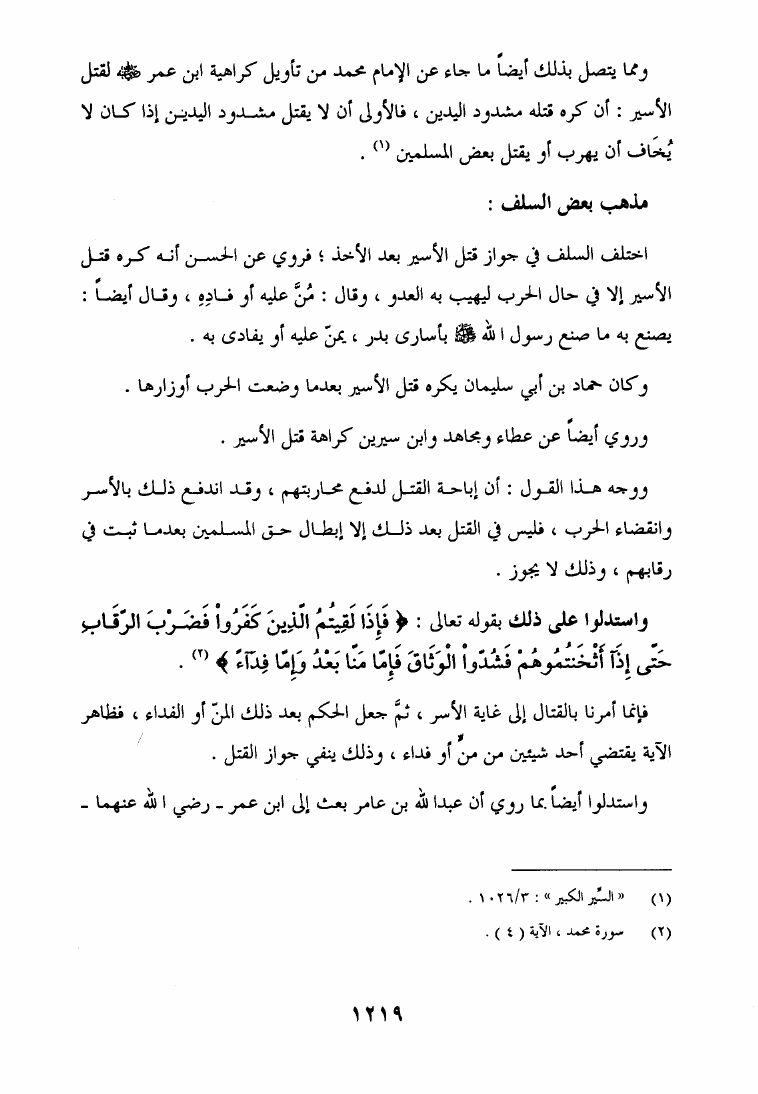 ومما يتصل بذلك أيضاً ما جاء عن الإمام محمد من تأويل كراهية ابن عمر ﷺ لقتل
الأسير : أن كره قتله مشدود اليدين ، فالأولى أن لا يقتل مشدود اليدين إذا كان لا
يُخَاف أن يهرب أو يقتل بعض المسلمين (١) .
مذهب بعض السلف :
اختلف السلف في جواز قتل الأسير بعد الأخذ ؛ فروي عن الحسن أنه كره قتل
الأسير إلا في حال الحرب ليهيب به العدو ، وقال : مُنَّ عليه أو فادِهِ ، وقال أيضاً :
يصنع به ما صنع رسول الله ﷺ بأسارى بدر ، يمنّ عليه أو يفادى به .
وكان حماد بن أبي سليمان يكره قتل الأسير بعدما وضعت الحرب أوزارها .
وروي أيضاً عن عطاء ومجاهد وابن سيرين كراهة قتل الأسير .
ووجه هذا القول : أن إباحة القتل لدفع محاربتهم ، وقد اندفع ذلك بالأسر
وانقضاء الحرب ، فليس في القتل بعد ذلك إلا إبطال حق المسلمين بعدما ثبت في
رقابهم ، وذلك لا يجوز .
واستدلوا على ذلك بقوله تعالى : ﴿ فَإِذَا لَقِيتُمُ الَّذِينَ كَفَرُواْ فَضَرْبَ الرِّقَابِ
حَتَّى إِذَآ أَثْخَنتُمُوهُمْ فَشُدّواْ الْوَثَاقَ فَإِمَّا مَنَّا بَعْدُ وَإِمَّا فِدَآءً ﴾ (٢) .
فإنما أمرنا بالقتال إلى غاية الأسر ، ثمَّ جعل الحكم بعد ذلك المنّ أو الفداء ، فظاهر
الآية يقتضي أحد شيئين من منٍّ أو فداء ، وذلك ينفي جواز القتل .
واستدلوا أيضاً بما روي أن عبدالله بن عامر بعث إلى ابن عمر ـ رضي الله عنهما ـ
(١) «السِّير الكبير» : ١٠٢٦/٣ .
(٢) سورة محمد ، الآية ( ٤ ) .
١٢١٩